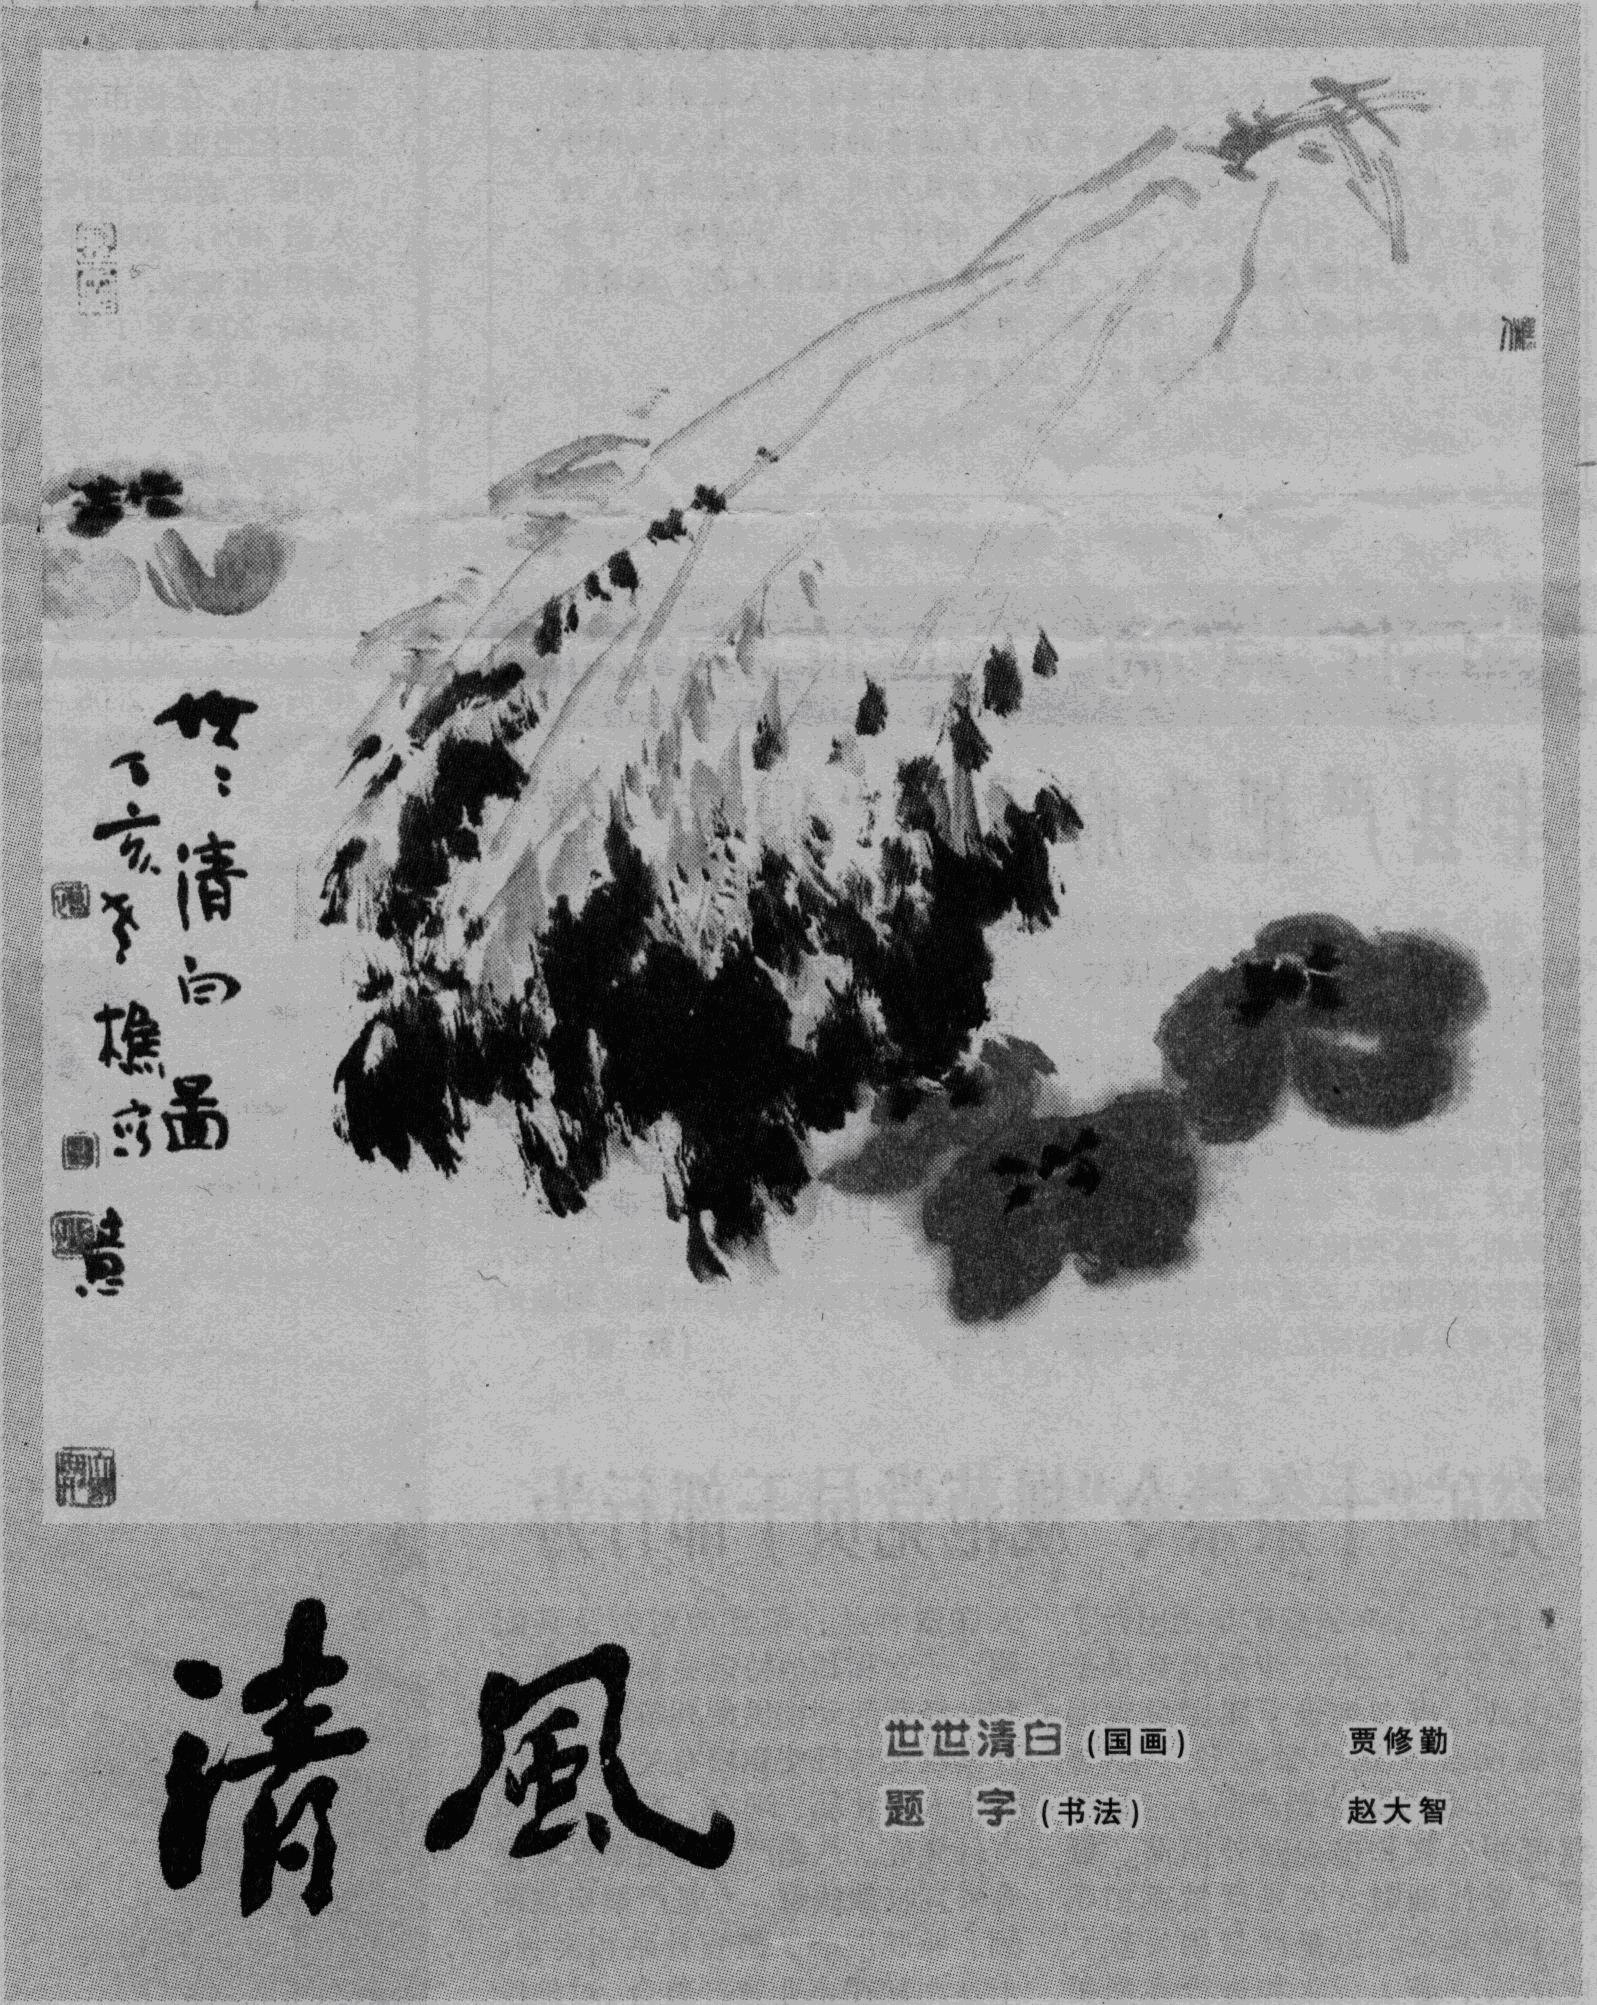 世世清白圖
丁亥冬樵
清風
世世清白 (国画) 贾修勤
题 字 (书法) 赵大智